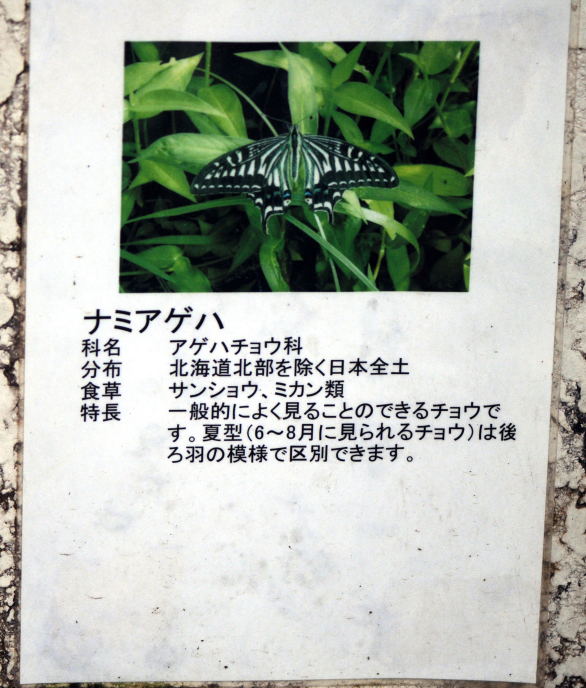 ナミアゲハ
科名 アゲハチョウ科
分布 北海道北部を除く日本全土
食草 サンショウ、ミカン類
特長 一般的によく見ることのできるチョウで
す。夏型(6～8月に見られるチョウ)は後
ろ羽の模様で区別できます。